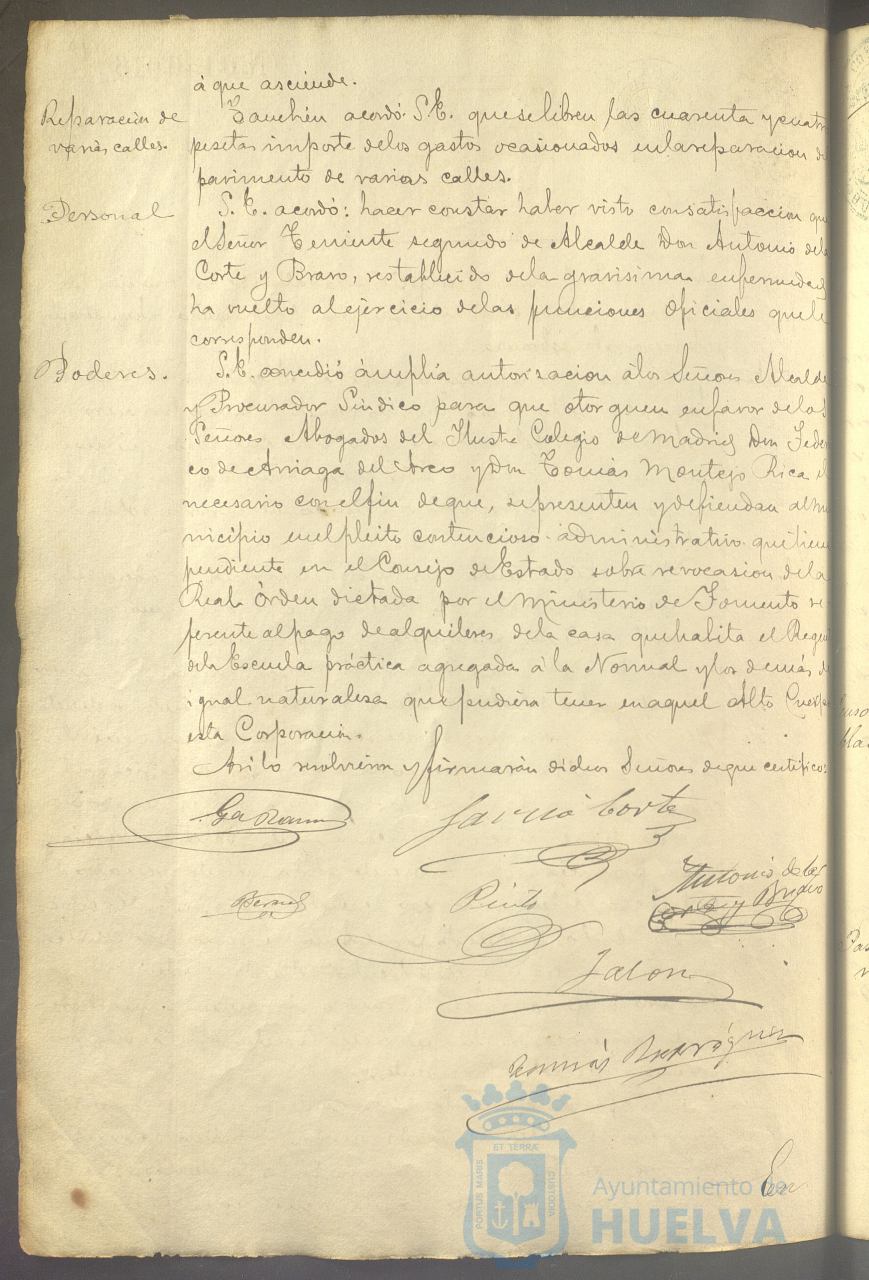 á que asciende.
Reparación de
varias calles.
Tambien acordó S.E. que se libren las cuarenta y cuatro
pesetas importe de los gastos ocasionados en la reparacion de
pavimento de varias calles.
Personal
S. E. acordó: hacer constar haber visto con satisfaccion que
el Señor Teniente segundo de Alcalde Don Antonio de la
Corte y Bravo, restablecido de la gravisima enfermedad
ha vuelto al ejercicio de las funciones oficiales que le
corresponden.
Poderes.
S. E. concedió ámplia autorisacion á los Señores Alcalde
y Procurador Sindico para que otorguen en favor de los
Señores Abogados del Ilustre Colegio de Madrid Don Federi
co de Arriaga del Arco y Don Tomás Montejo Rica el
necesario con el fin de que, representen y defiendan al mu
nicipio en el pleito contencioso-administrativo que tiene
pendiente en el Consejo de Estado sobre revocasion de la
Real Órden dictada por el Ministerio de Fomento re-
ferente al pago de alquileres de la casa que habita el Regen
de la Escuela práctica agregada á la Normal y los demás de
igual naturalesa que pudiera tener en aquel Alto Cuerpo
esta Corporación.
Asi lo resolvieron y firmarán dichos Señores de que certifico:
García Corte
Antonio de la
Corte y Bravo
Pinto
Jalon
Tomás Rodríguez
En
ET TERRÆ
PORTUS MARIS
CUSTODIA
Ayuntamiento de
HUELVA